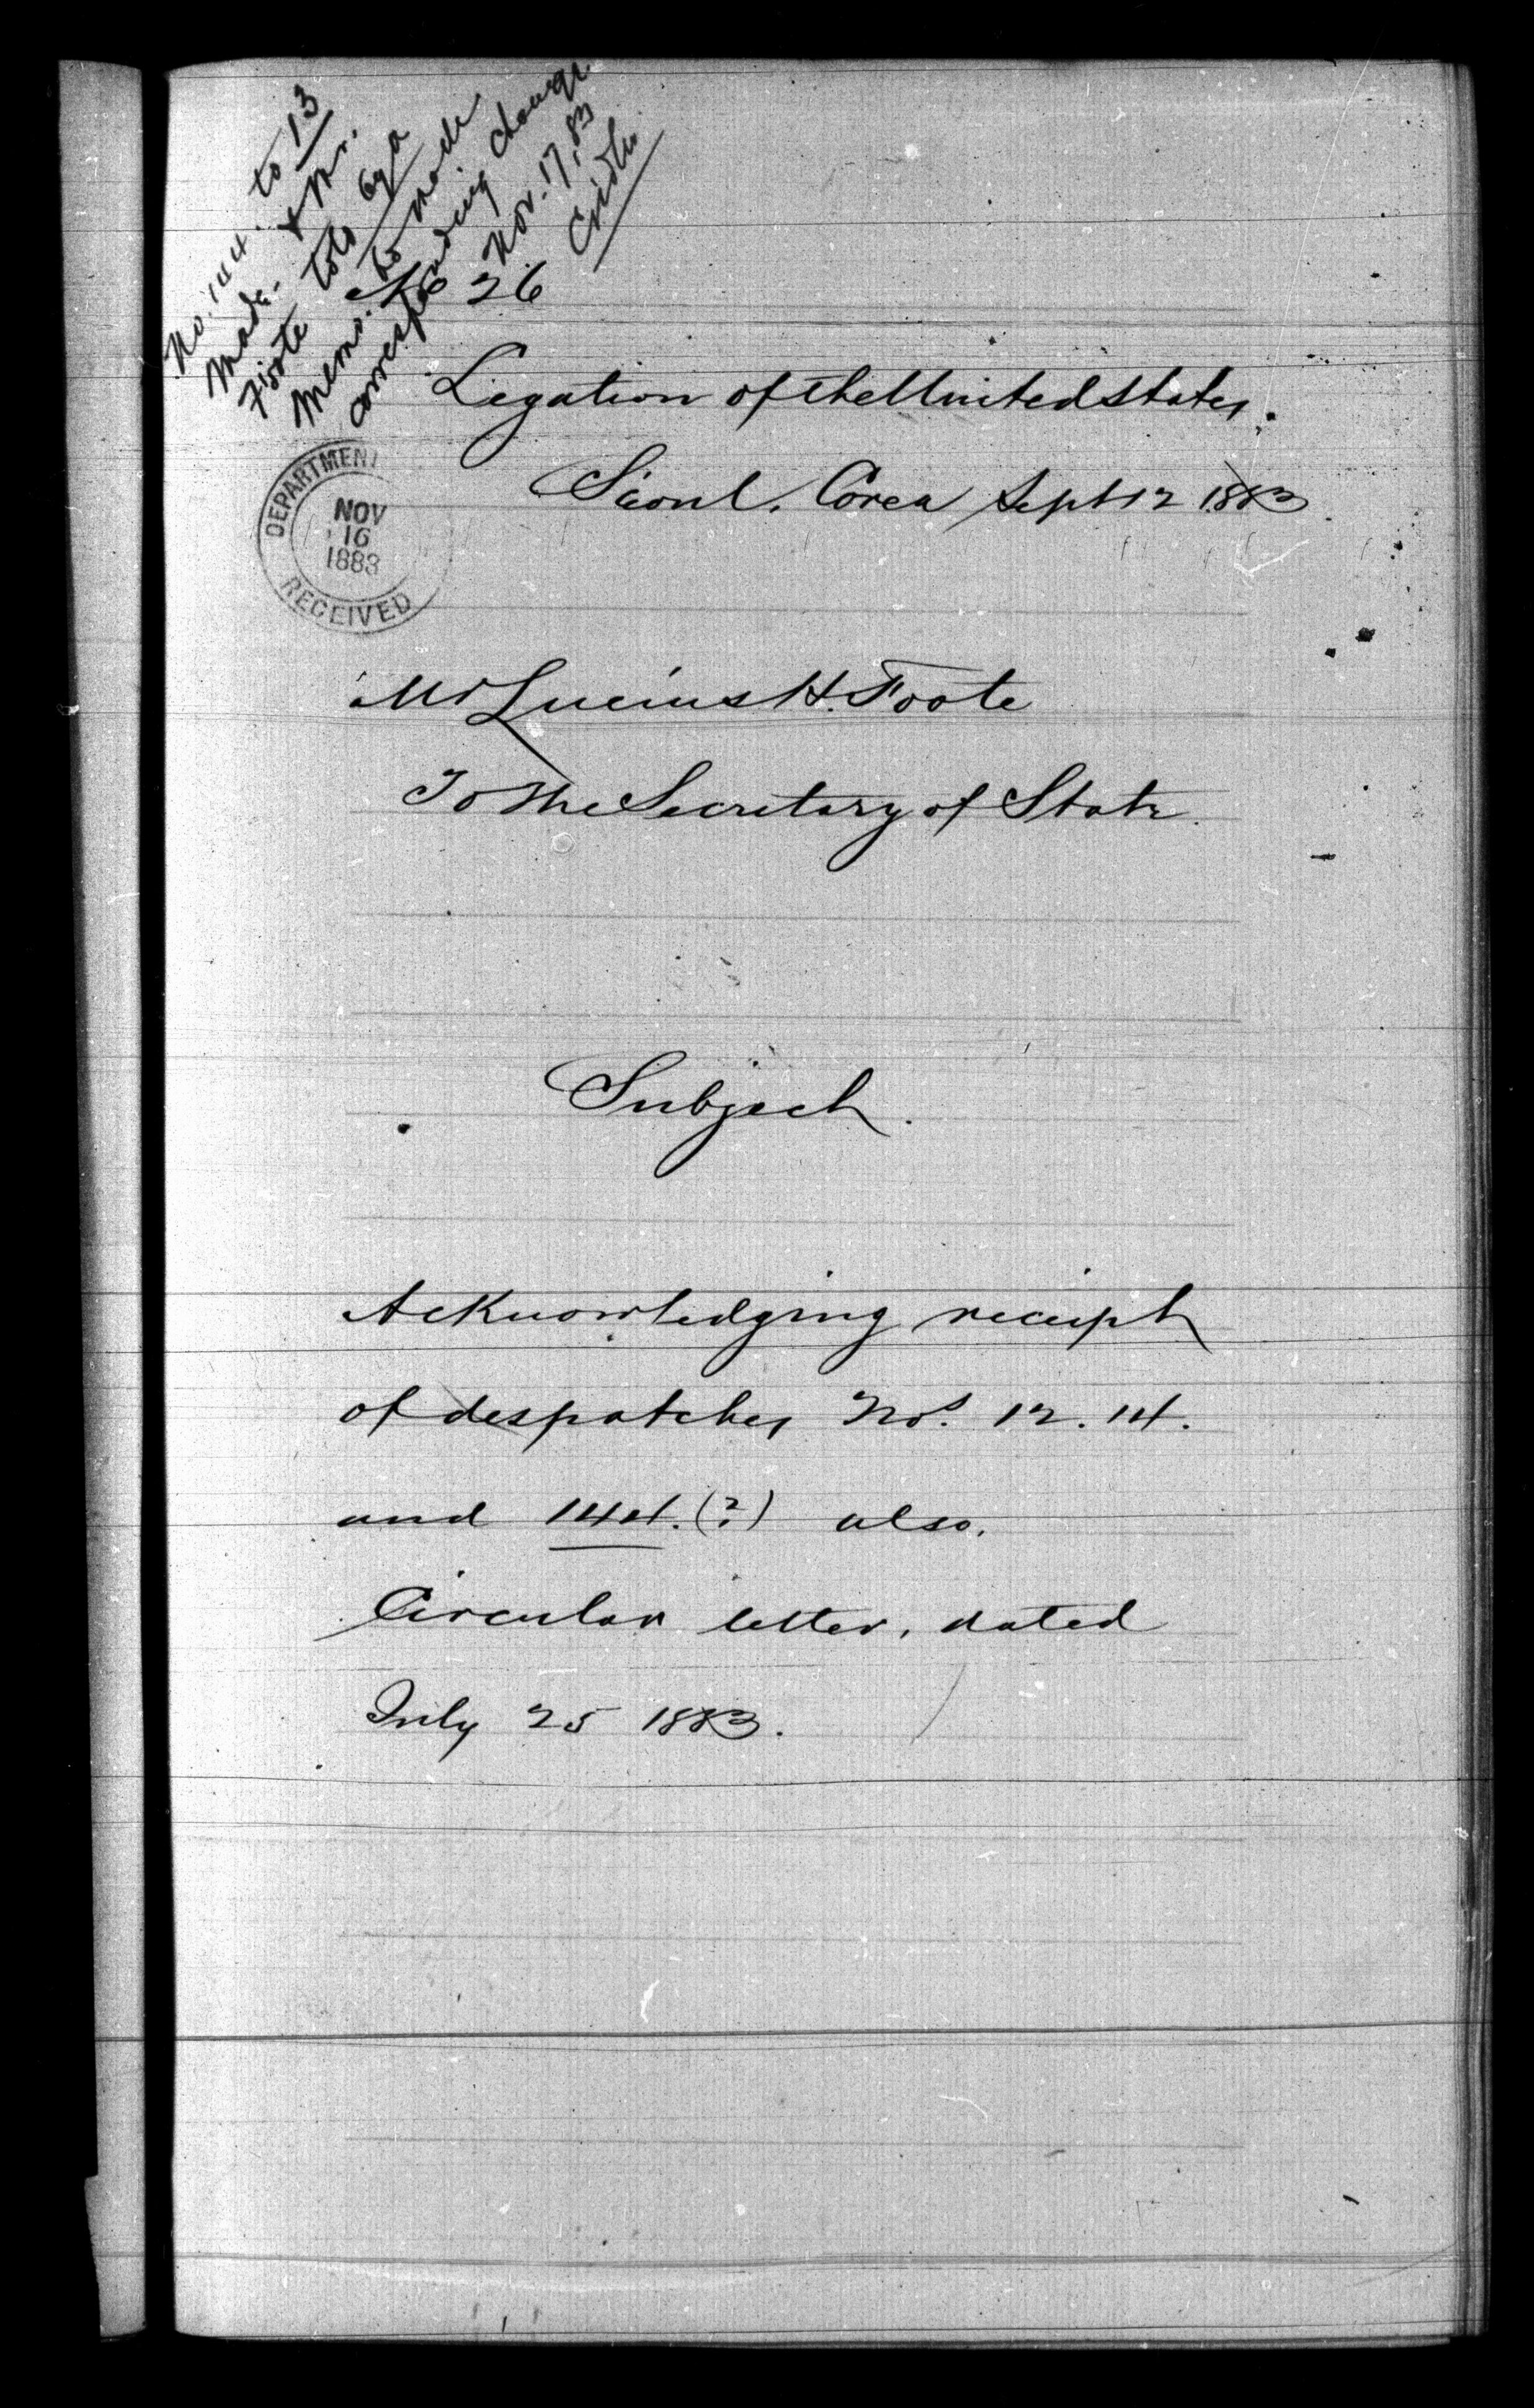 No. 144. to 13
made. & Mr.
Foote told by a
Memo. to made
corresponding change.
Nov. 17, 83
No 26
Legation of the United States.
Seoul, Corea Sept 12 1883
DEPARTMENT
NOV
16
1883
RECEIVED
Mr Lucius H. Foote
To the Secretary of State.
Subject.
Acknowledging receipt
of despatches Nos. 12. 14.
and 144. (?) also,
Circular letter, dated
July 25 1883.